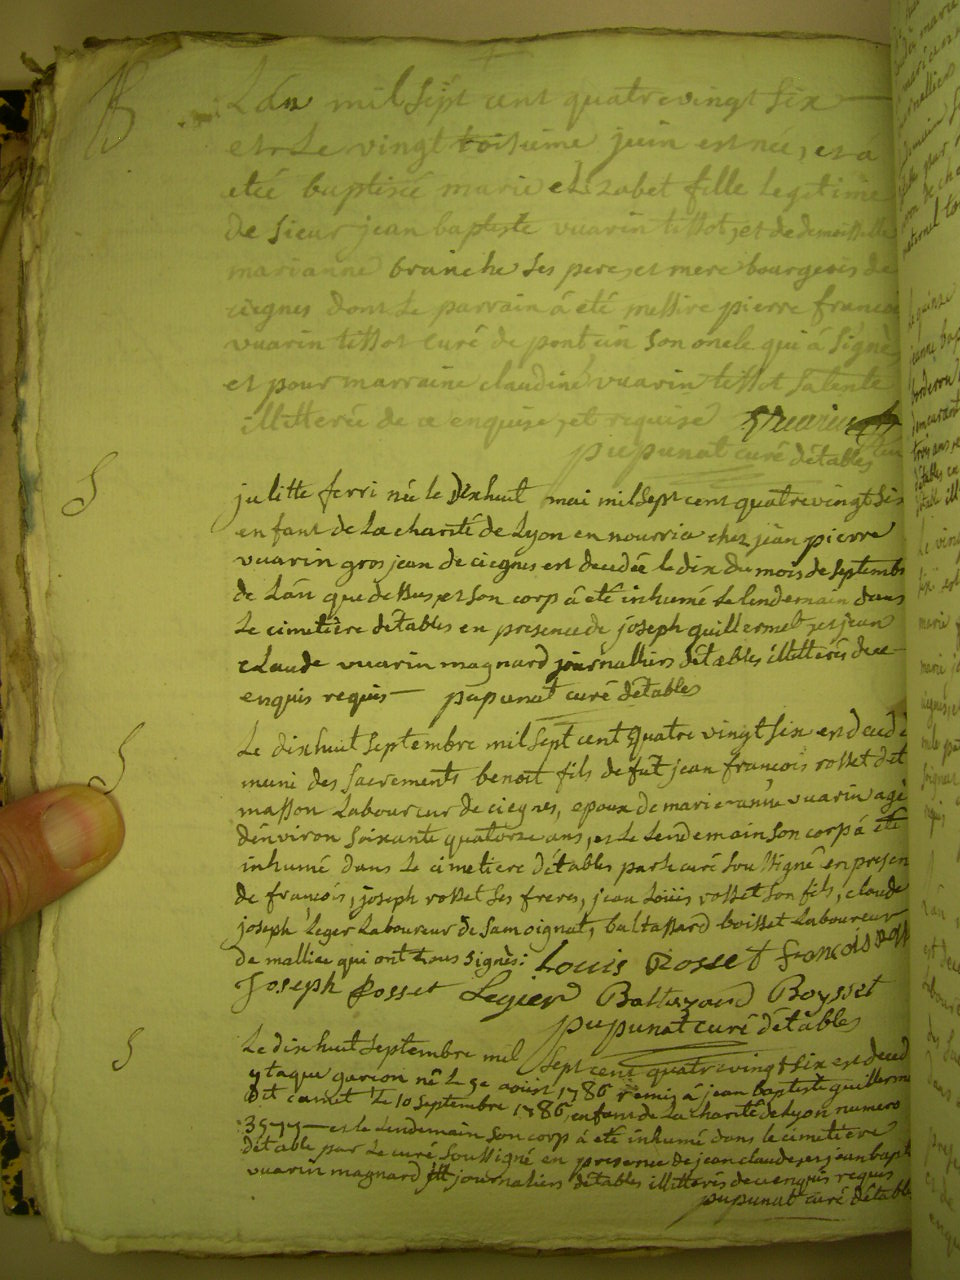 B
L'an mil sept cent quatre vingt six
et le vingt troisieme juin est née, et a
eteé baptisée marie elizabet fille legitime
de sieur jean baptiste vuarin tissot, et de demoisselle
marianne branche ses pere, et mere bourgeois de
ciegnes dont le parrain à été messire pierre francoi
vuarin tissot curé de pont ain son oncle qui à signè
et pour marraine claudine vuarin tissot sa tente
illitteré de ce enquise, et requise Vuarin
pupunat curé détables
S
julitte ferri née le dixhuit mai mil sept cent quatrevingt six
enfant de la charité de Lyon en nourrice chez jean pierre
vuarin gros jean de ciegnes est decedée le dix du mois de septembr
de l'an que dessus, et son corp à été inhumé le lendemain dans
le cimetière détables en presence de joseph guillermet, et jean
claude vuarin magnard journalliers détables illitterés de ce
enquis requis pupunat curé détables
S
Le dixhuit septembre mil sept cent quatre vingt six est decedé
muni des sacrements benoit fils de fut jean francois rosset dit
masson laboureur de ciegnes, epoux de marie anne vuarin agé
denviron soixante quatorze ans, et le lendemain son corp à été
inhumé dans le cimetiere détables par le curé soussigné en presen
de francois, joseph rosset ses freres, jean loüis rosset son fils, claude
joseph leger laboureur de samoignat, baltassard boisset laboureur
de malliac qui ont tous signès: Louis Rosset francois Ross
Joseph Rosset Leger Baltazard Boysset
pupunat curé détables
S
Le dixhuit septembre mil sept cent quatrevingt six est deced
ytaque garcon né le 5e aoüst 1786 remis à jean baptiste guillerme
dit camet le 10 septembre 1786, enfant de la charité de Lyon numero
et le lendemain son corp à été inhumé dans le cimetiere
détable par le curé soussigné en presence de jean claude, et jean bapt
vuarin magnard journaliers détables illitterés de ce enquis requis
pupunat curé détable